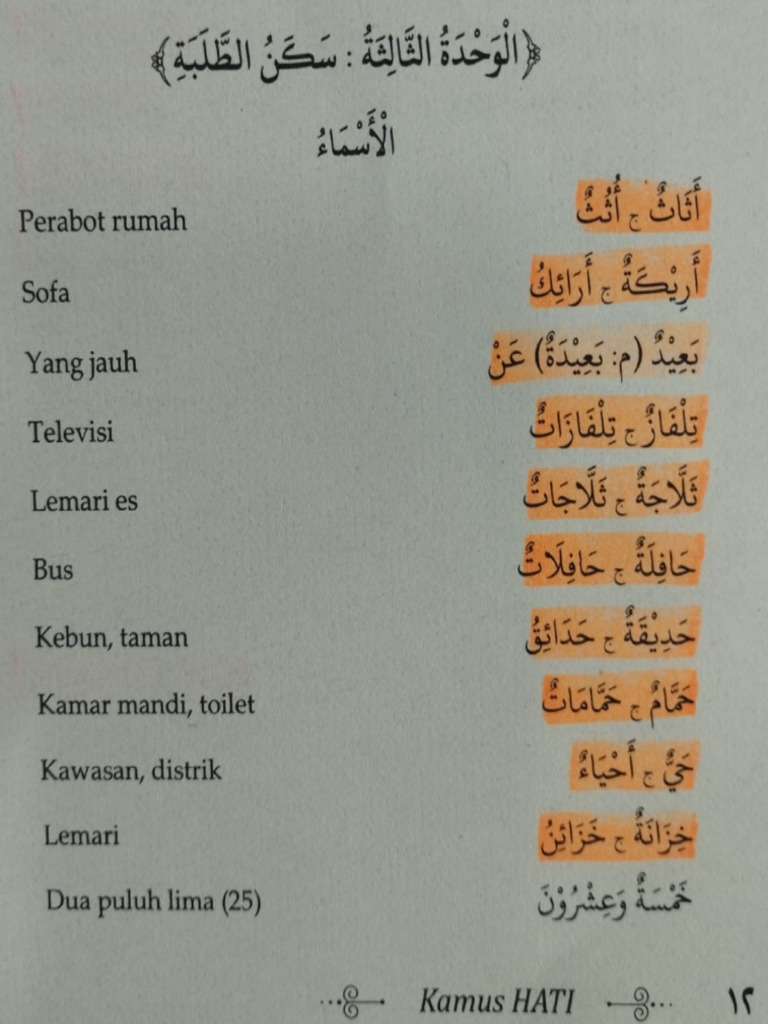 ﴿الْوَحْدَةُ الثَّالِثَةُ : سَكَنُ الطَّلَبَةِ﴾
الْأَسْمَاءُ
Perabot rumah أَثَاثٌ ج أُثُثٌ
Sofa أَرِيْكَةٌ ج أَرَائِكُ
Yang jauh بَعِيْدٌ (م: بَعِيْدَةٌ) عَنْ
Televisi تِلْفَازٌ ج تِلْفَازَاتٌ
Lemari es ثَلَّاجَةٌ ج ثَلَّاجَاتٌ
Bus حَافِلَةٌ ج حَافِلَاتٌ
Kebun, taman حَدِيْقَةٌ ج حَدَائِقُ
Kamar mandi, toilet حَمَّامٌ ج حَمَّامَاتٌ
Kawasan, distrik حَيٌّ ج أَحْيَاءٌ
Lemari خِزَانَةٌ ج خَزَائِنُ
Dua puluh lima (25) خَمْسَةٌ وَعِشْرُوْنَ
Kamus HATI ١٢